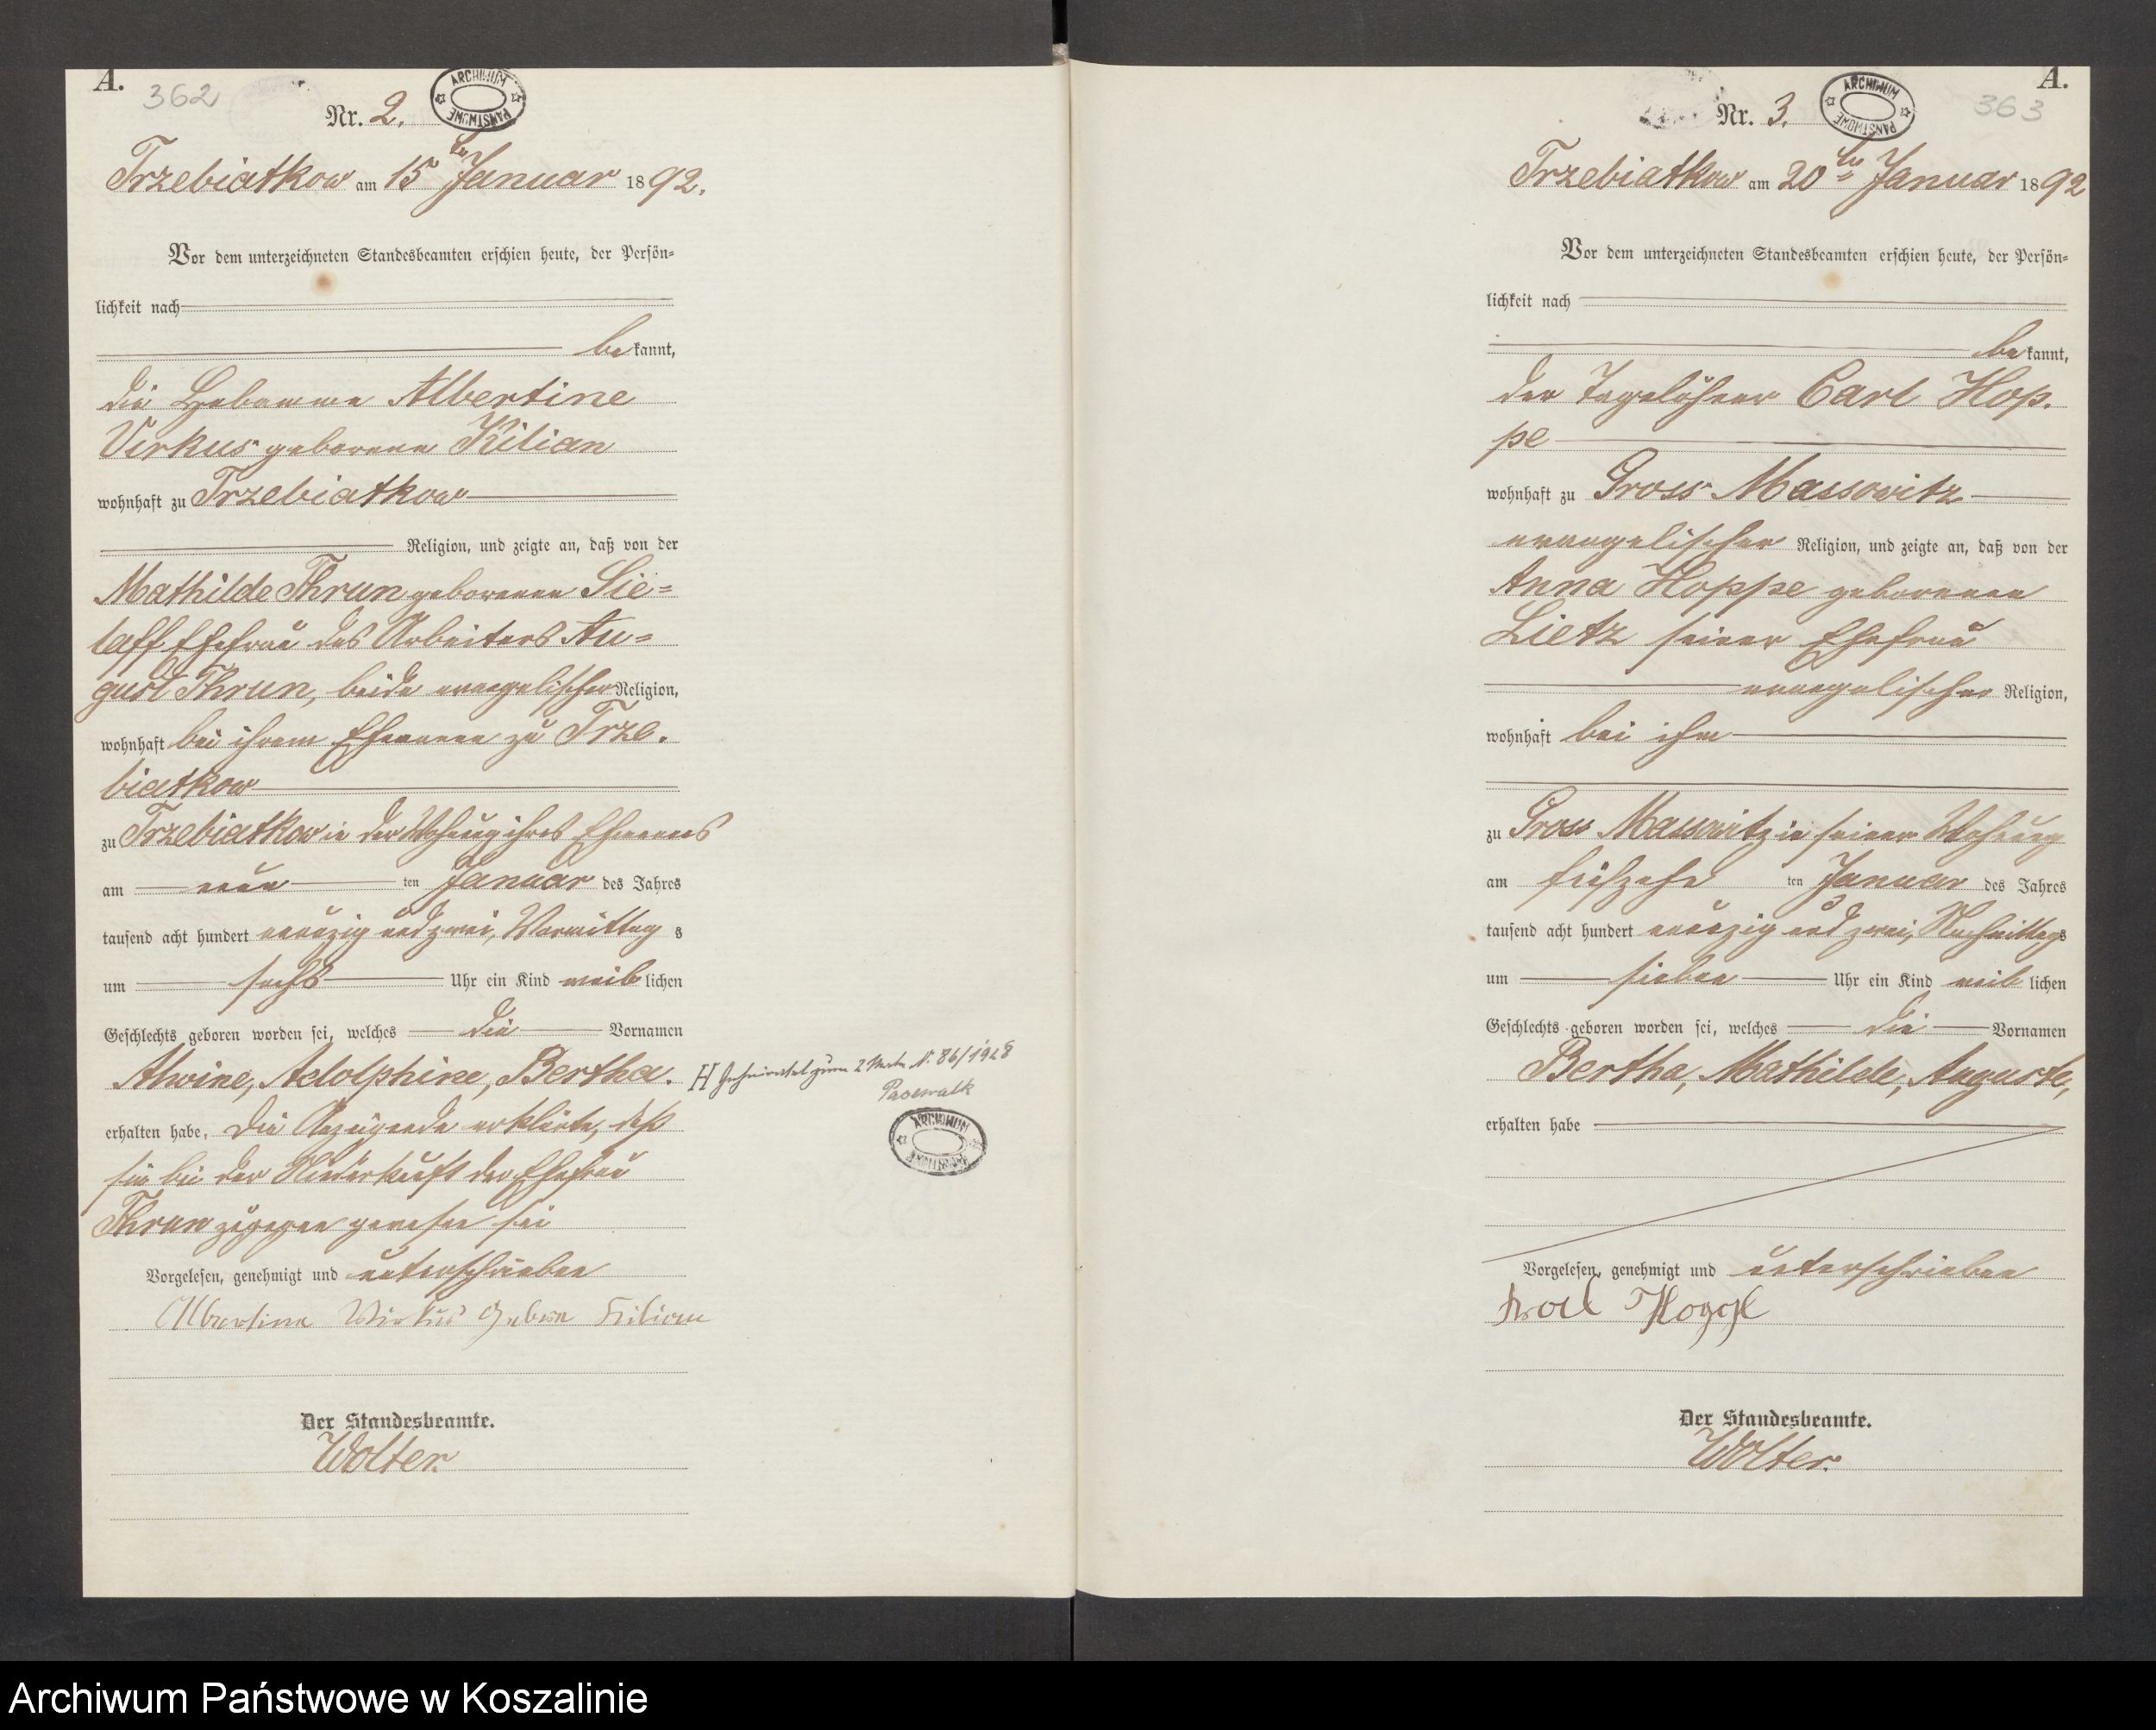 A.
362
Nr. 2.
ARCHIWUM PAŃSTWOWE
Trzebiatkow am 15ten Januar 1892.
Vor dem unterzeichneten Standesbeamten erschien heute, der Persön=
lichkeit nach
bekannt,
die Hebamme Albertine
Virkus geborene Kilian
wohnhaft zu Trzebiatkow
Religion, und zeigte an, daß von der
Mathilde Thrun geborenen Sie=
laff Ehefrau des Arbeiters Au=
gust Thrun, beide evangelischer Religion,
wohnhaft bei ihrem Ehemanne zu Trze.
biatkow
zu Trzebiatkow in der Wohnung ihres Ehemannes
am neun ten Januar des Jahres
tausend acht hundert neunzig und zwei, Vormittags
um sechs Uhr ein Kind weiblichen
Geschlechts geboren worden sei, welches die Vornamen
Alwine, Adolphine, Bertha.
erhalten habe. Die Anzeigende erklärte, daß
sie bei der Niederkunft der Ehefrau
Thrun zugegen gewesen sei
Vorgelesen, genehmigt und unterschrieben
Albertine Wirkus geborn Kilian
Der Standesbeamte.
Wolter.
H Geheiratet zum 2 N. 86/1928
Pasewalk
ARCHIWUM PAŃSTWOWE
A.
363
Nr. 3.
ARCHIWUM PAŃSTWOWE
Trzebiatkow am 20ten Januar 1892
Vor dem unterzeichneten Standesbeamten erschien heute, der Persön=
lichkeit nach
bekannt,
der Tagelöhner Carl Hop.
pe
wohnhaft zu Gross Massowitz
evangelischer Religion, und zeigte an, daß von der
Anna Hoppe geborenen
Lietz seiner Ehefrau
evangelischer Religion,
wohnhaft bei ihm
zu Gross Massowitz in seiner Wohnung
am fünfzehn ten Januar des Jahres
tausend acht hundert neunzig und zwei, Nachmittags
um sieben Uhr ein Kind weiblichen
Geschlechts geboren worden sei, welches die Vornamen
Bertha, Mathilde, Auguste,
erhalten habe
Vorgelesen, genehmigt und unterschrieben
Hoppe
Der Standesbeamte.
Wolter.
Archiwum Państwowe w Koszalinie